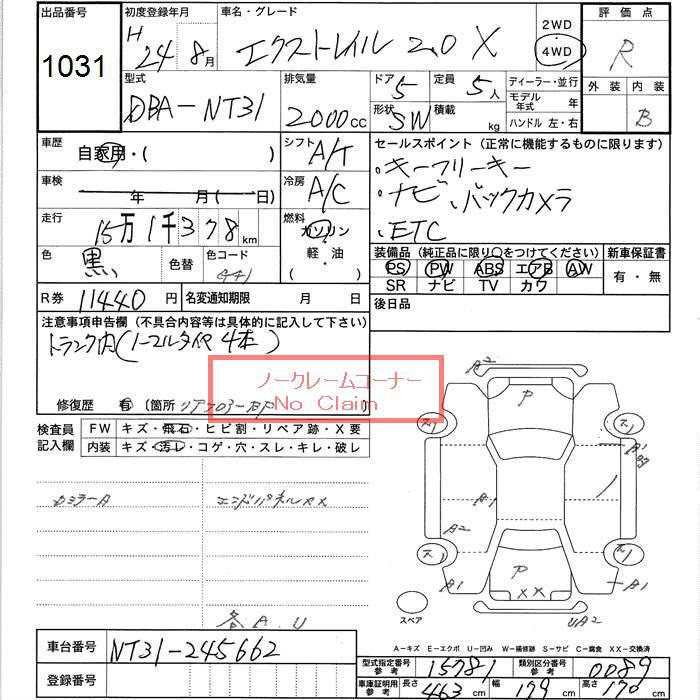 出品番号 初度登録年月 車名・グレード 2WD 4WD 評価点
1031 H 24年 8月 エクストレイル 2.0 X R
型式 排気量 ドア 5 定員 5人 ディーラー・並行 外装 内装
DBA-NT31 2000cc 形状 SW 積載 kg モデル年式 年 B
ハンドル 左・右
車歴 自家用・( ) シフト A/T セールスポイント (正常に機能するものに限ります)
・キーフリーキー
車検 年 月( 日) 冷房 A/C ・ナビ、バックカメラ
走行 15万1千378km 燃料 ガソリン・軽・油・( ) ・ETC
色 黒 色替 色コード 装備品 (純正品に限り○をつけてください) 新車保証書
PS PW ABS エアB AW 有・無
SR ナビ TV カワ
R券 11440円 名変通知期限 月 日 後日品
注意事項申告欄 (不具合内容等は具体的に記入して下さい)
トランク内(ノーマルタイヤ 4本)
ノークレームコーナー
No Claim
修復歴 有 〔箇所
検査員記入欄 FW キズ・飛石・ヒビ割・リペア跡・X要
内装 キズ・汚レ・コゲ・穴・スレ・キレ・破レ
エンドパネルXX
各A.U
A2
P
ス
ス
A1
A1
A2
ス
ス
P
XX
A1
A1
UA2
スペア
A-キズ E-エクボ U-凹み W-補修跡 S-サビ C-腐食 XX-交換済
車台番号 NT31-245662
登録番号
型式指定番号 参考 15781 類別区分番号 参考 0089
車庫証明用 参考 長さ 463cm 幅 179cm 高さ 170cm